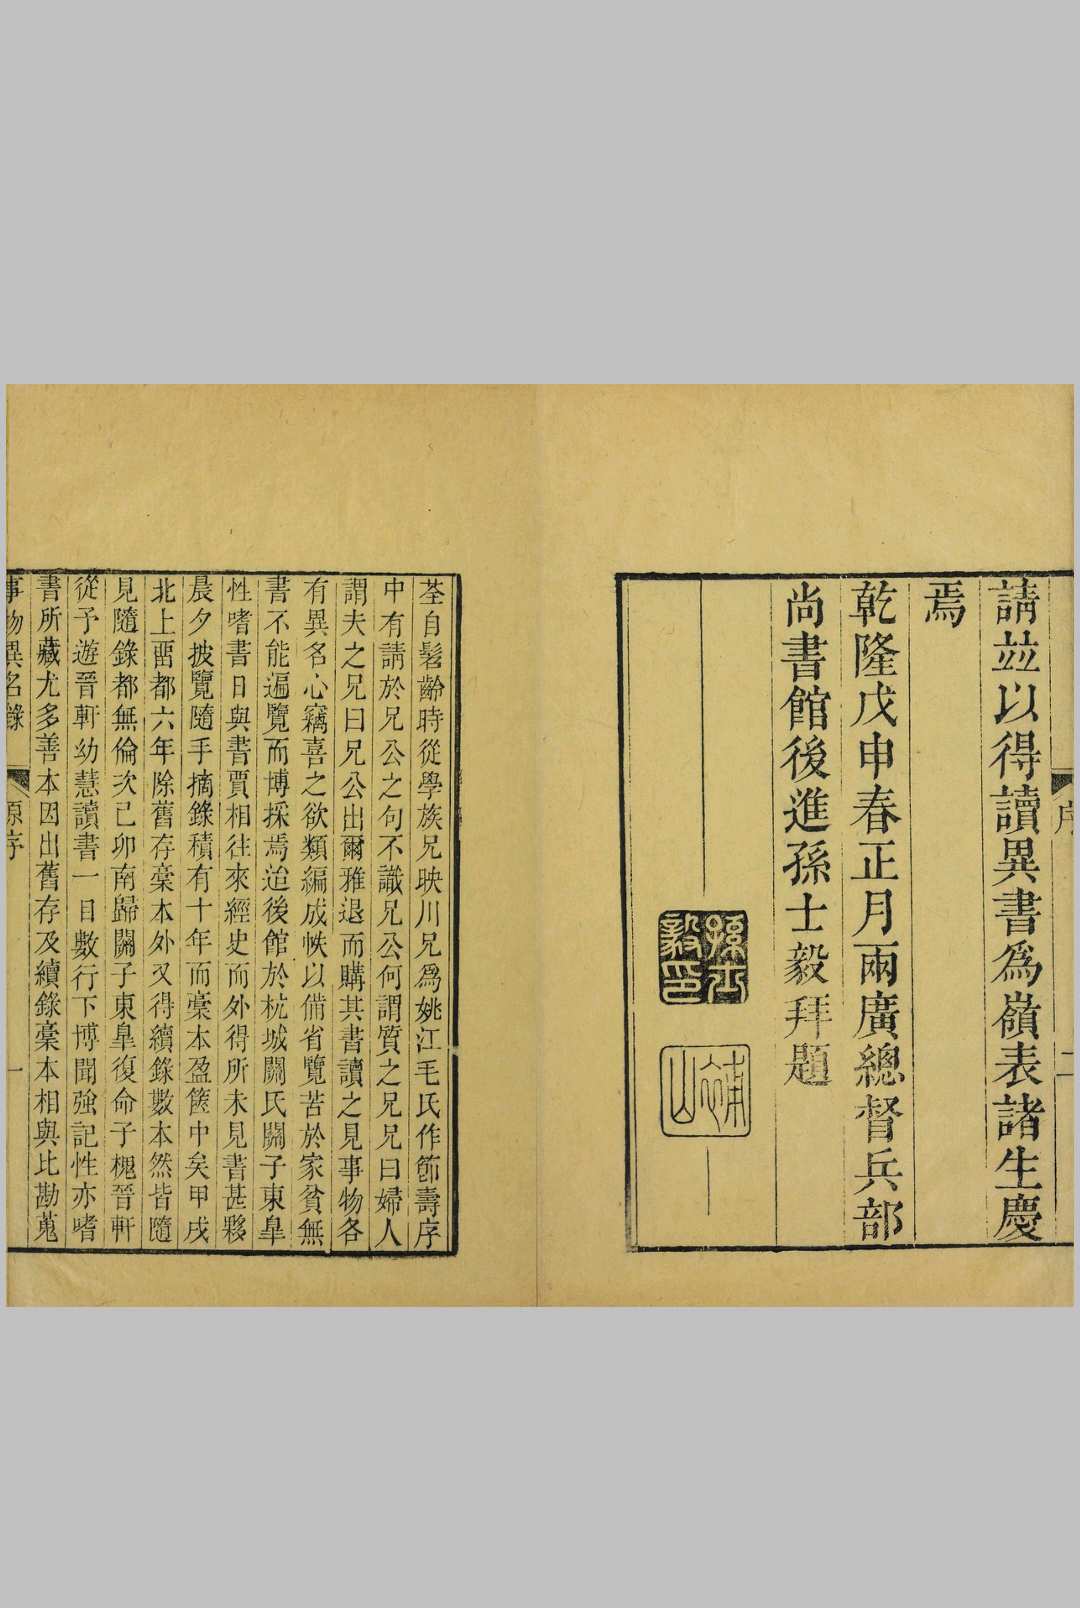 序
二
請竝以得讀異書爲嶺表諸生慶
焉
乾隆戊申春正月兩廣總督兵部
尚書館後進孫士毅拜題
孫士毅印
補山
荃自髫齡時從學族兄映川兄爲姚江毛氏作節壽序
中有請於兄公之句不識兄公何謂質之兄兄曰婦人
謂夫之兄曰兄公出爾雅退而購其書讀之見事物各
有異名心竊喜之欲類編成帙以備省覽苦於家貧無
書不能遍覽而博採焉迨後館於杭城關氏關子東臯
性嗜書日與書賈相往來經史而外得所未見書甚夥
晨夕披覽隨手摘錄積有十年而稾本盈篋中矣甲戌
北上畱都六年除舊存稾本外又得續錄數本然皆隨
見隨錄都無倫次己卯南歸關子東臯復命子槐晉軒
從予遊晉軒幼慧讀書一目數行下博聞強記性亦嗜
書所藏尤多善本因出舊存及續錄稾本相與比勘蒐
事物異名錄
原序
一